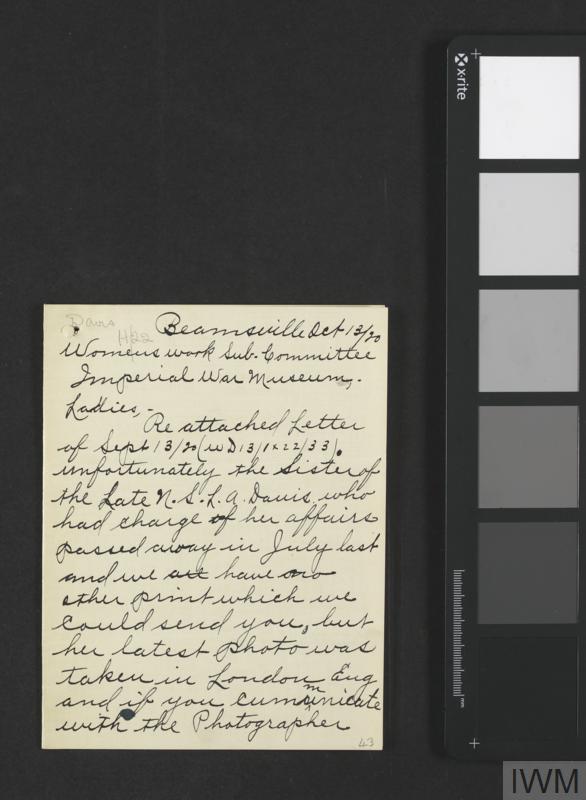 Davis
H/22
Beamsville Oct 13/20
Womens work Sub-Committee
Imperial War Museum,-
Ladies,-
Re attached Letter
of Sept 13/20 (WD 13/1x22/33).
Unfortunately the Sister of
the Late N.S. L.A. Davis, who
had charge of her affairs
passed away in July last
and we have no
other print which we
could send you, but
her latest photo was
taken in London Eng
and if you cummunicate
with the Photographer
43
x-rite
mm
IWM